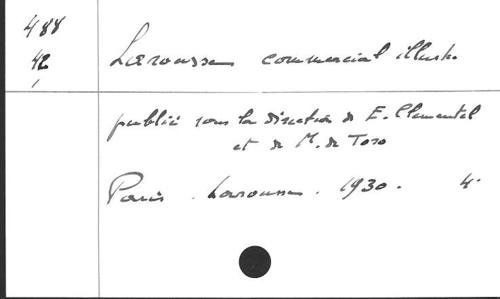 488
42
Larousse commercial illustré
publié sous la direction de E. Clémentel
et de M. de Toro
Paris. Larousse. 1930. 4°